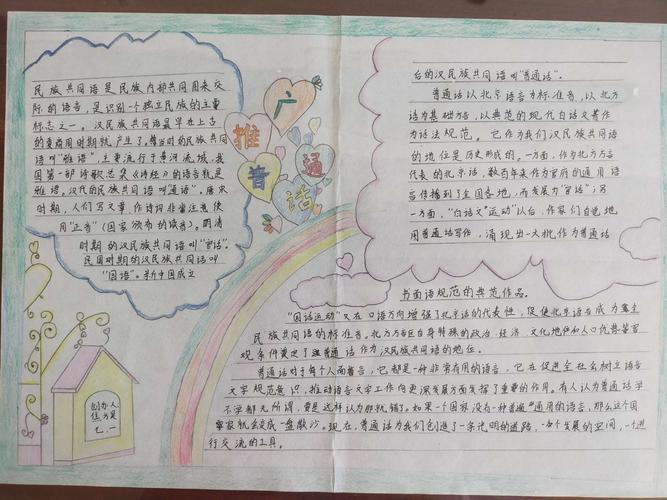 推广普通话
民族共同语是民族内部共同用来交
际的语言，是识别一个独立民族的主重
标志之一。汉民族共同语最早在上古
的夏商周时期就产生了，当时的民族共同
语叫“雅语”，主要流行于黄河流域，我
国第一部诗歌总集《诗经》的语言就是
雅语。汉代的民族共同语叫“通语”。唐宋
时期，人们写文章、作诗词非常注意使
用“正音”（国家颁布的读音）。明清
时期的汉民族共同语叫“官话”。
民国时期的汉民族共同话叫
“国语”。新中国成立
后的汉民族共同语叫“普通话”。
普通话以北京语音为标准音，以北方
话为基础方言，以典范的现代白话文著作
为语法规范。它作为我们汉民族共同语
的地位是历史形成的。一方面，作为北方方言
代表的北京话，数百年来作为官府的通用语
言传播到了全国各地，而发展为“官话”；另
一方面，“白话文”运动”以后，作家们自觉地
用普通话写作，涌现出一大批作为普通话
书面语规范的典范作品。
“国语运动”又在口语方向增强了北京话的代表性，促使北京语音成为
民族共同语的标准音。北方方言区自身特殊的政治、经济、文化地位和人口优势等客
观条件奠定了普通话作为汉民族共同语的地位。
普通话对于每个人而言，它都是一种非常有用的语言，它在促进全社会树立语言
文字规范意识，推动语言文字工作向更深发展方面发挥了重要的作用。有人认为普通话学
不学都无所谓，要是这样认为那就错了。如果一个国家没有一种普遍通用的语言，那么这个国
家就会变成一盘散沙。现在，普通话为我们创造了一条光明的道路，一个发展的空间，一个进
行交流的工具。
创办人